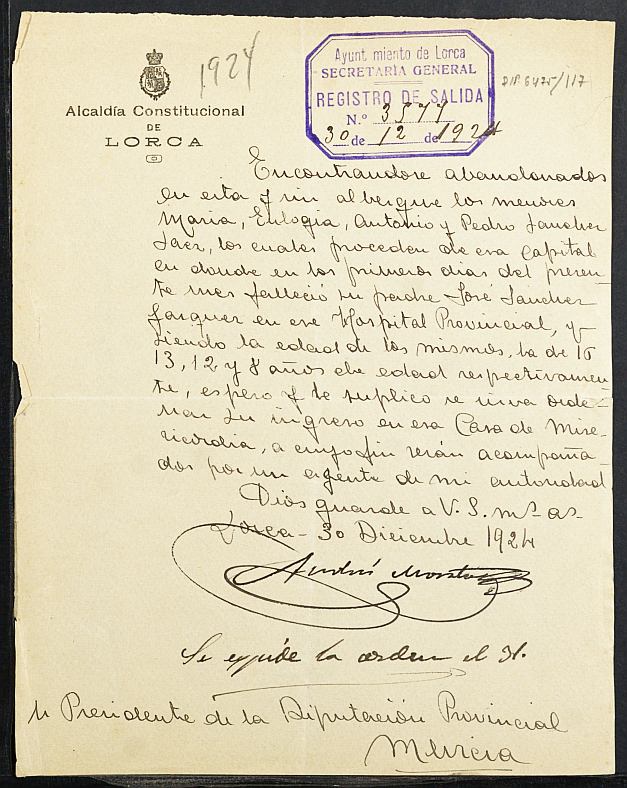 1924
DIP. 6475/117
Alcaldía Constitucional
DE
LORCA
Ayuntamiento de Lorca
SECRETARÍA GENERAL
REGISTRO DE SALIDA
N.º 3577
30 de 12 de 1924
Encontrandose abandonados
en esta y sin albergue los menores
Maria, Eulogia, Antonio y Pedro Sanchez
Saez, los cuales proceden de esa capital
en donde en los primeros dias del presen-
te mes falleció su padre José Sánchez
en ese Hospital Provincial, y
siendo la edad de los mismos, la de 15
13, 12 y 8 años de edad respectivamen-
te, espero y le suplico se sirva orde-
nar su ingreso en esa Casa de Mise-
ricordia, a cuyo fin serán acompaña-
dos por un agente de mi autoridad
Dios guarde a V. S. ms. as.
Lorca - 30 Diciembre 1924
Andrés
Se expide la orden el 31.
Sr Presidente de la Diputación Provincial
Murcia